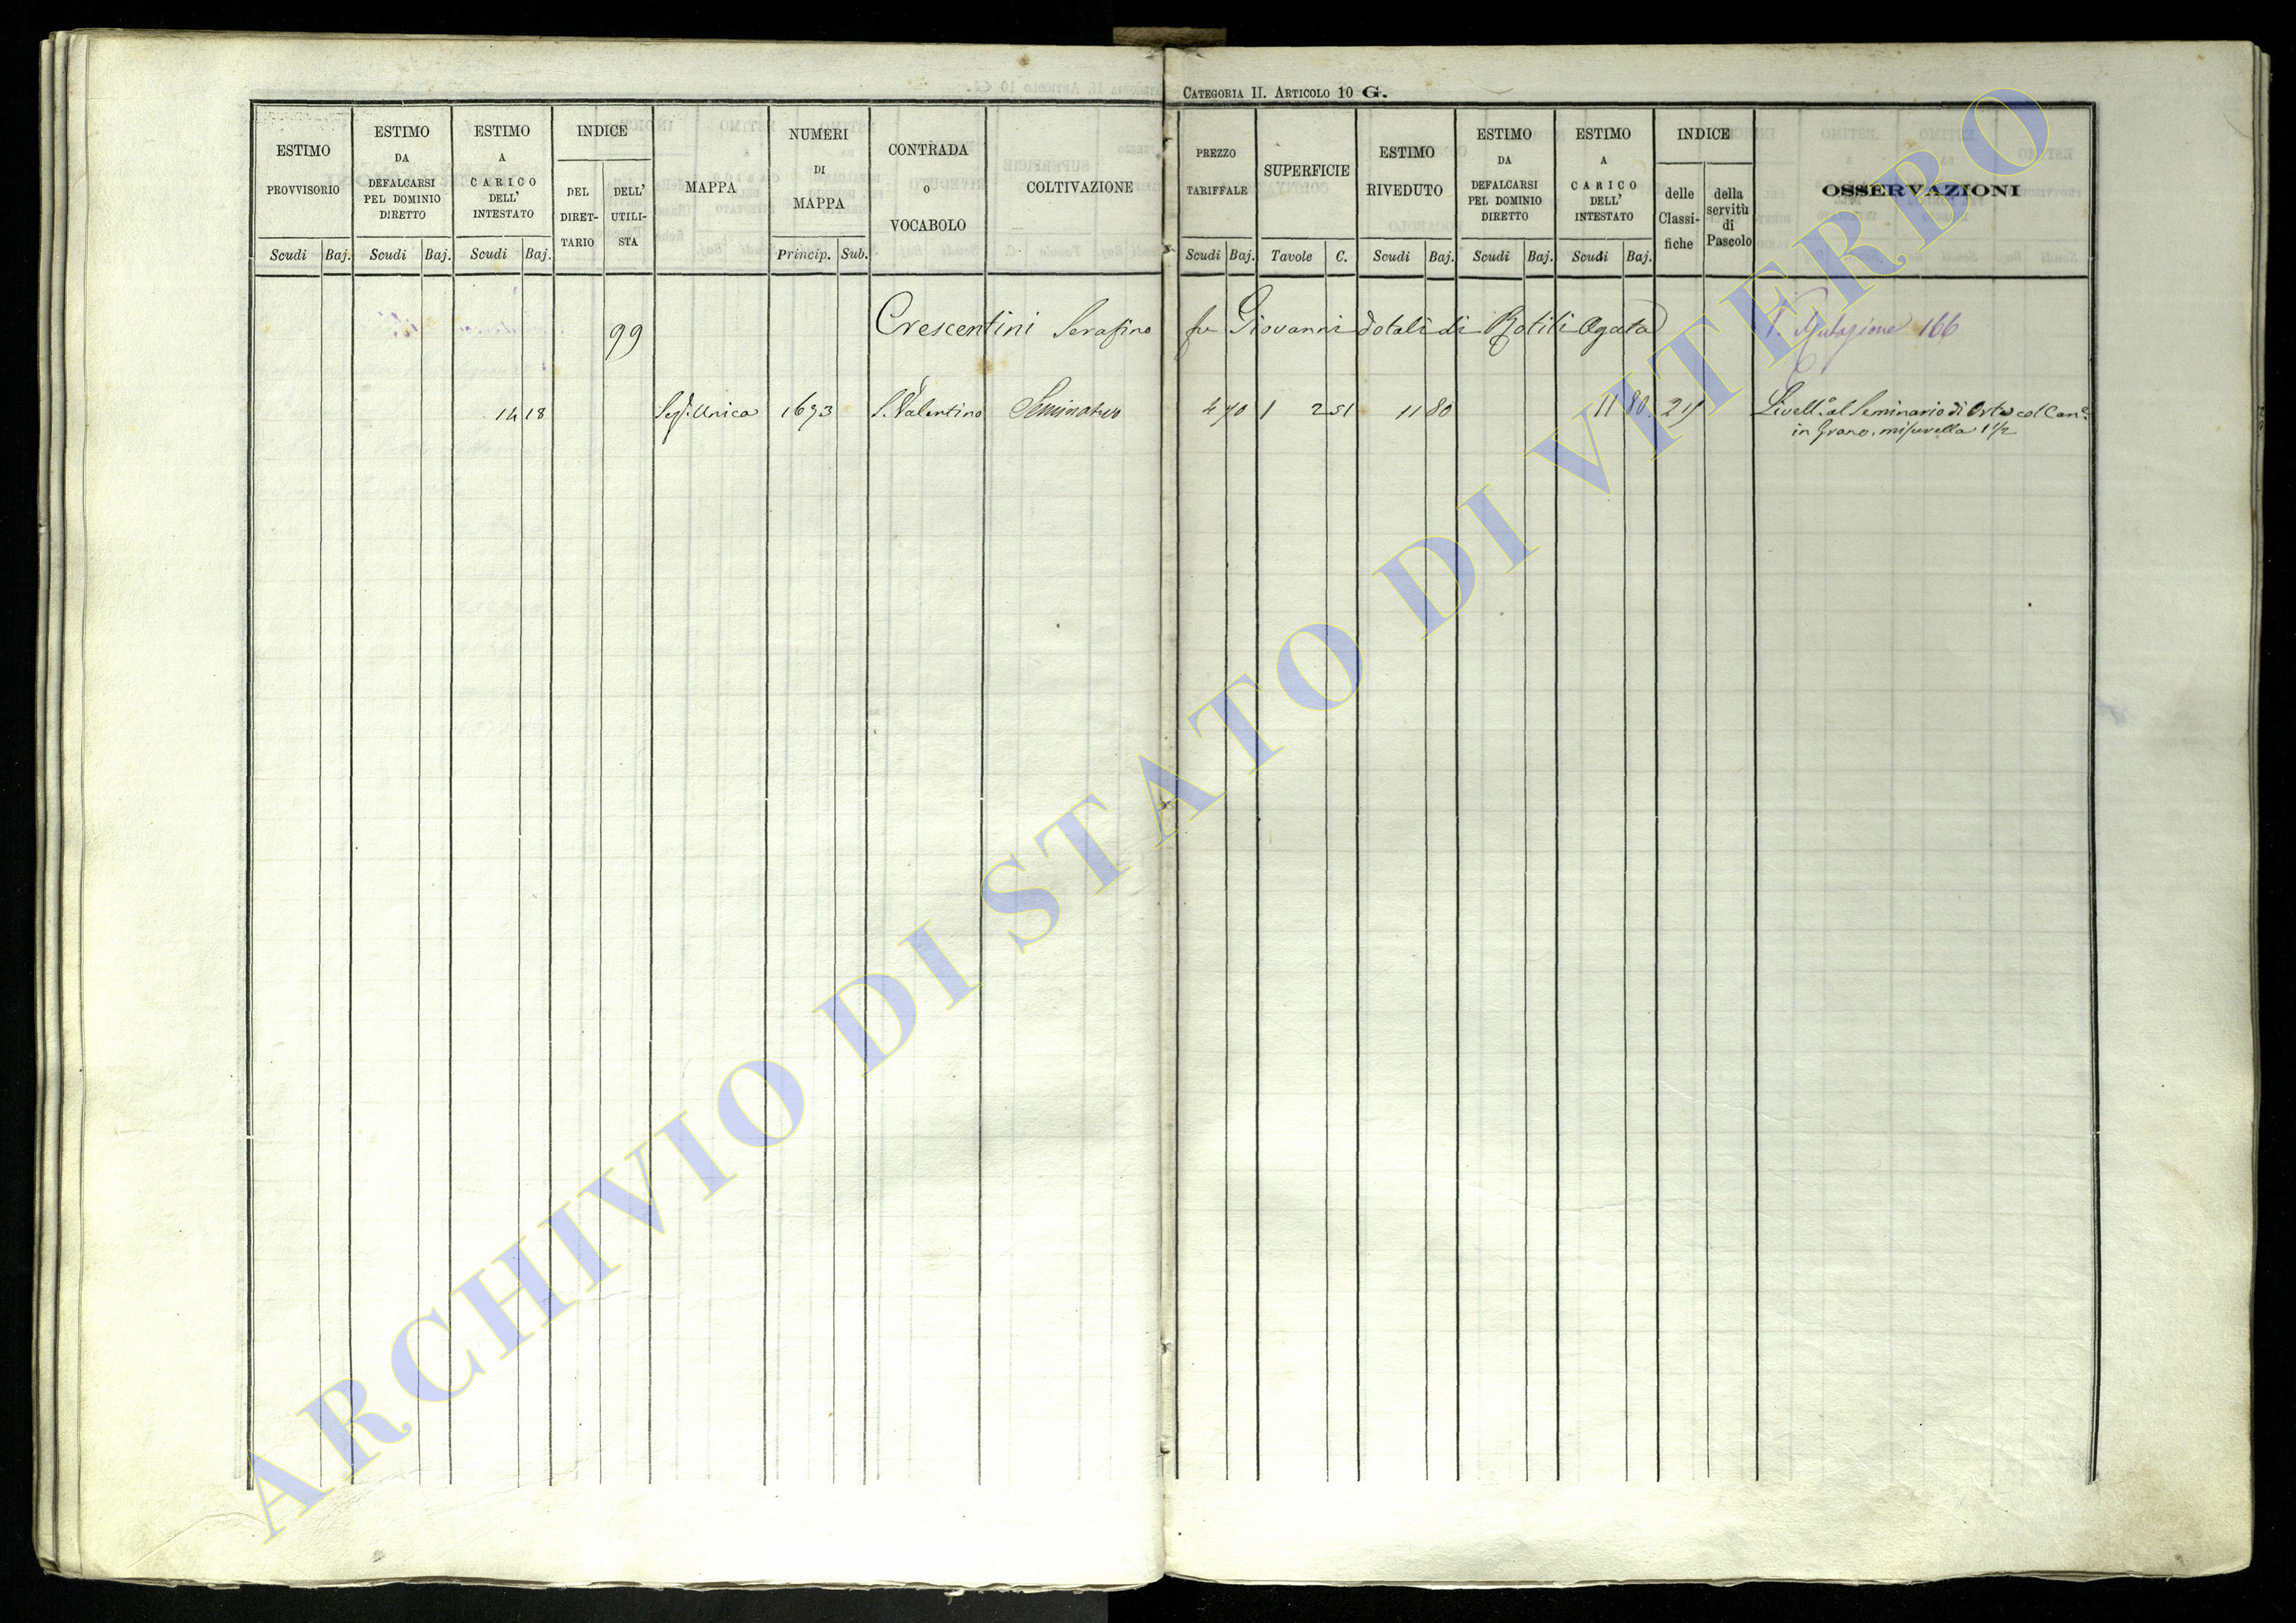 CATEGORIA II. ARTICOLO 10 G.
ESTIMO PROVVISORIO Scudi Baj.
ESTIMO DA DEFALCARSI PEL DOMINIO DIRETTO Scudi Baj.
ESTIMO A CARICO DELL' INTESTATO Scudi Baj.
INDICE
DEL DIRET-TARIO
DELL' UTILI-STA
MAPPA
NUMERI DI MAPPA Princip. Sub.
CONTRADA O VOCABOLO
COLTIVAZIONE
PREZZO TARIFFALE Scudi Baj.
SUPERFICIE Tavole C.
ESTIMO RIVEDUTO Scudi Baj.
ESTIMO DA DEFALCARSI PEL DOMINIO DIRETTO Scudi Baj.
ESTIMO A CARICO DELL' INTESTATO Scudi Baj.
INDICE
delle Classi-fiche
della servitù di Pascolo
OSSERVAZIONI
99 Crescentini Serafino fu Giovanni dotali di Rotili Agata V. Mutazione 166
14 18 Unica 1693 S. Valentino Seminativo 4 70 2 51 11 80 11 80 Livell.o al Seminario di Orte col Can.e
in Grano, misurella 1 1/2
ARCHIVIO DI STATO DI VITERBO